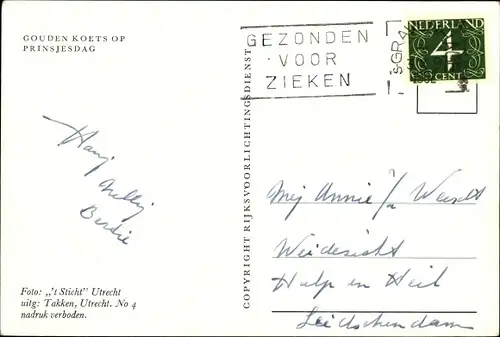 GOUDEN KOETS OP
PRINSJESDAG
GEZONDEN
VOOR
ZIEKEN
NEDERLAND
4
CENT
COPYRIGHT RIJKSVOORLICHTINGSDIENST
Hanj
Nellij
Bertie
Mej Annie
Weidezicht
Hulp en Heil
Leidschendam
Foto: „'t Sticht" Utrecht
uitg: Takken, Utrecht. No 4
nadruk verboden.